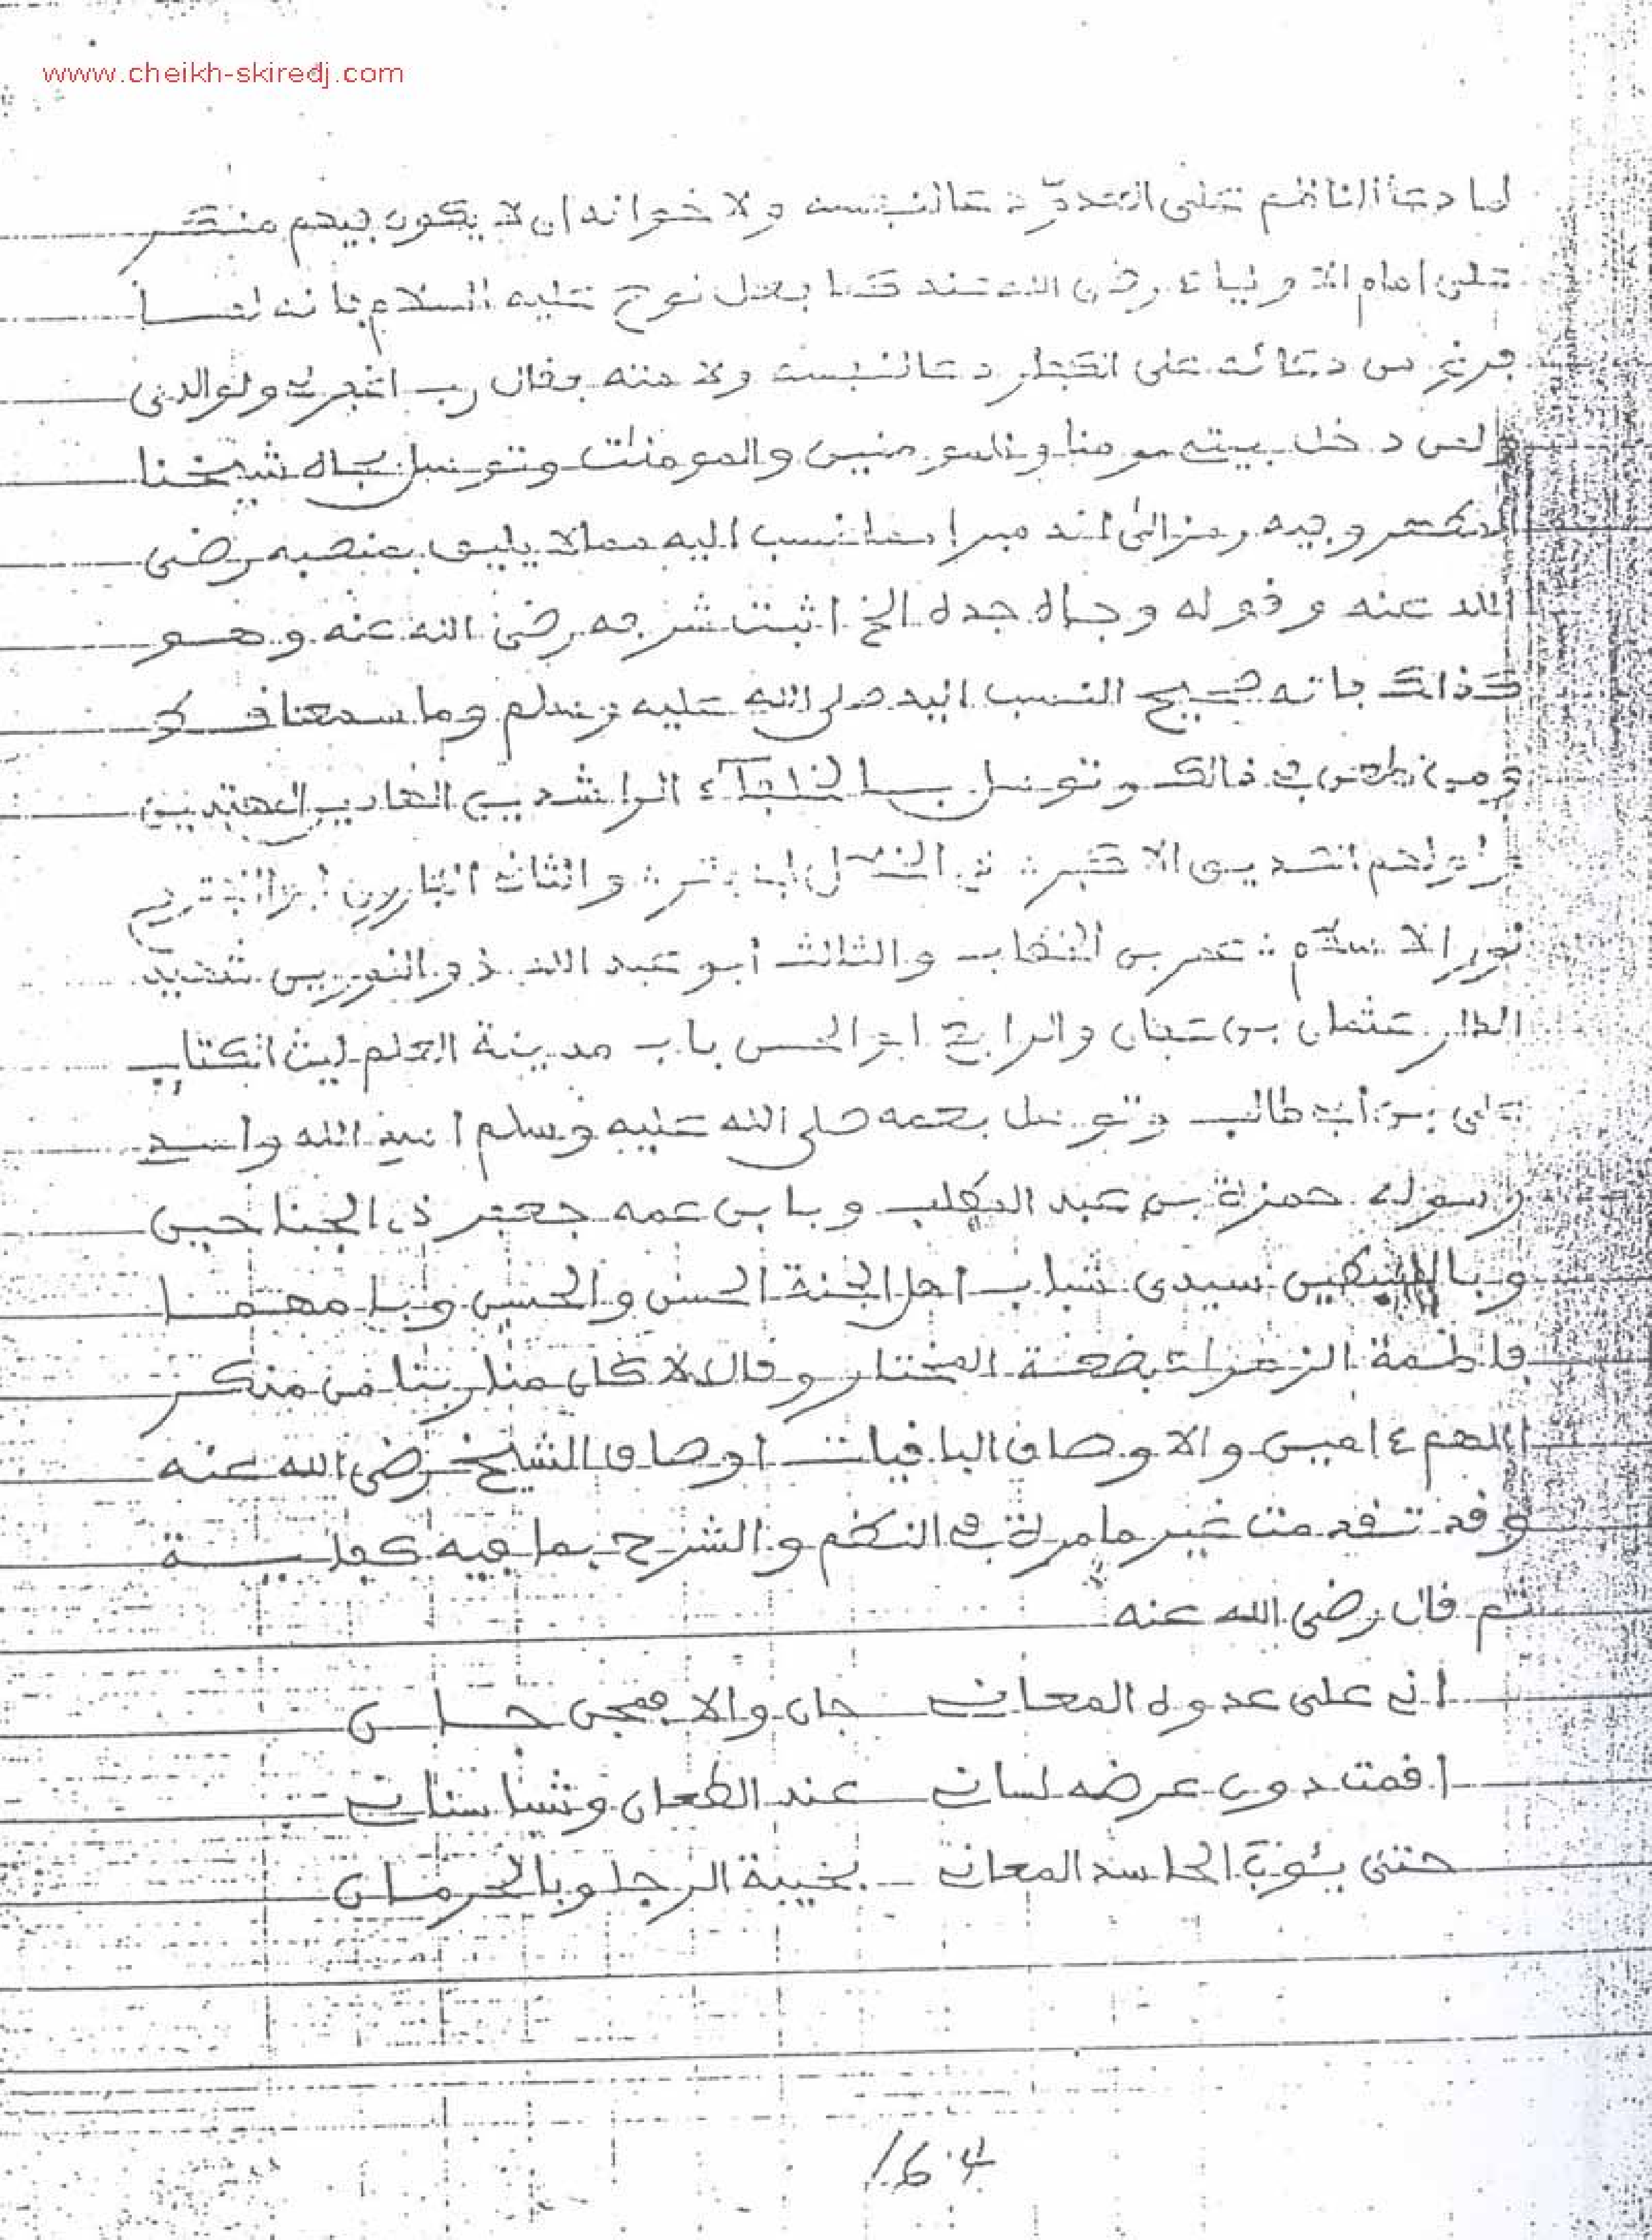 www.cheikh-skiredj.com
لما دعا الناظم على العدو دعا لنفسه ولاخوانه ان لا يكون فيهم منكر
على امام الاولياء رضي الله عنه كما فعل نوح عليه السلام فانه لمـــا
فرغ من دعائه على الكفار دعا لنفسه ولامته فقال رب اغفر لى ولوالدى
ولمن دخل بيتى مومنا وللمومنين والمومنات وتوسل بجاه شيخنا
المكتم وفيه رمز الى انه مبرا مما نسب اليه مما لا يليق بمنصبه رضى
الله عنه وقوله وجاه جده الخ اثبت شرفه رضى الله عنه وهـــو
كذلك فانه صحيح النسب اليه صلى الله عليه وسلم وما سمعنا قـــط
من يطعن في ذالك وتوسل بـالخلفآء الراشدين الهادين المهتدين
اولهم الصديق الاكبر والثانى الفاروق
نور الاسلام عمر بن الخطاب والثالث أبو عبد الله ذو النورين شهيد
الدار عثمان بن عفان والرابع ابو الحسن باب مدينة العلم ليث الكتاب
على بن أبى طالب وتوسل بعمه صلى الله عليه وسلم اسد الله واسـد
رسوله حمزة بن عبد المطلب وبابن عمه جعفر ذى الجناحين
وبالسبطين سيدى شباب اهل الجنة الحسن والحسين وبامهمـــا
فاطمة الزهراء بضعة المختار وقال لا كان منا ربنا من منكـر
اللهم ءامين والاوصاف الباقيات اوصاف الشيخ رضى الله عنه
وقد تقدمت غير ما مرة في النظم والشرح بما فيه كفايـــة
ثم قال رضى الله عنه
انى على عدوه المعانـى جان والا فمجن حـــان
اقمت دون عرضه لسانى عند الطعان وشبا سنانى
حتى يئوب الحاسد المعانى بخيبة الرجا وبالحرمـان